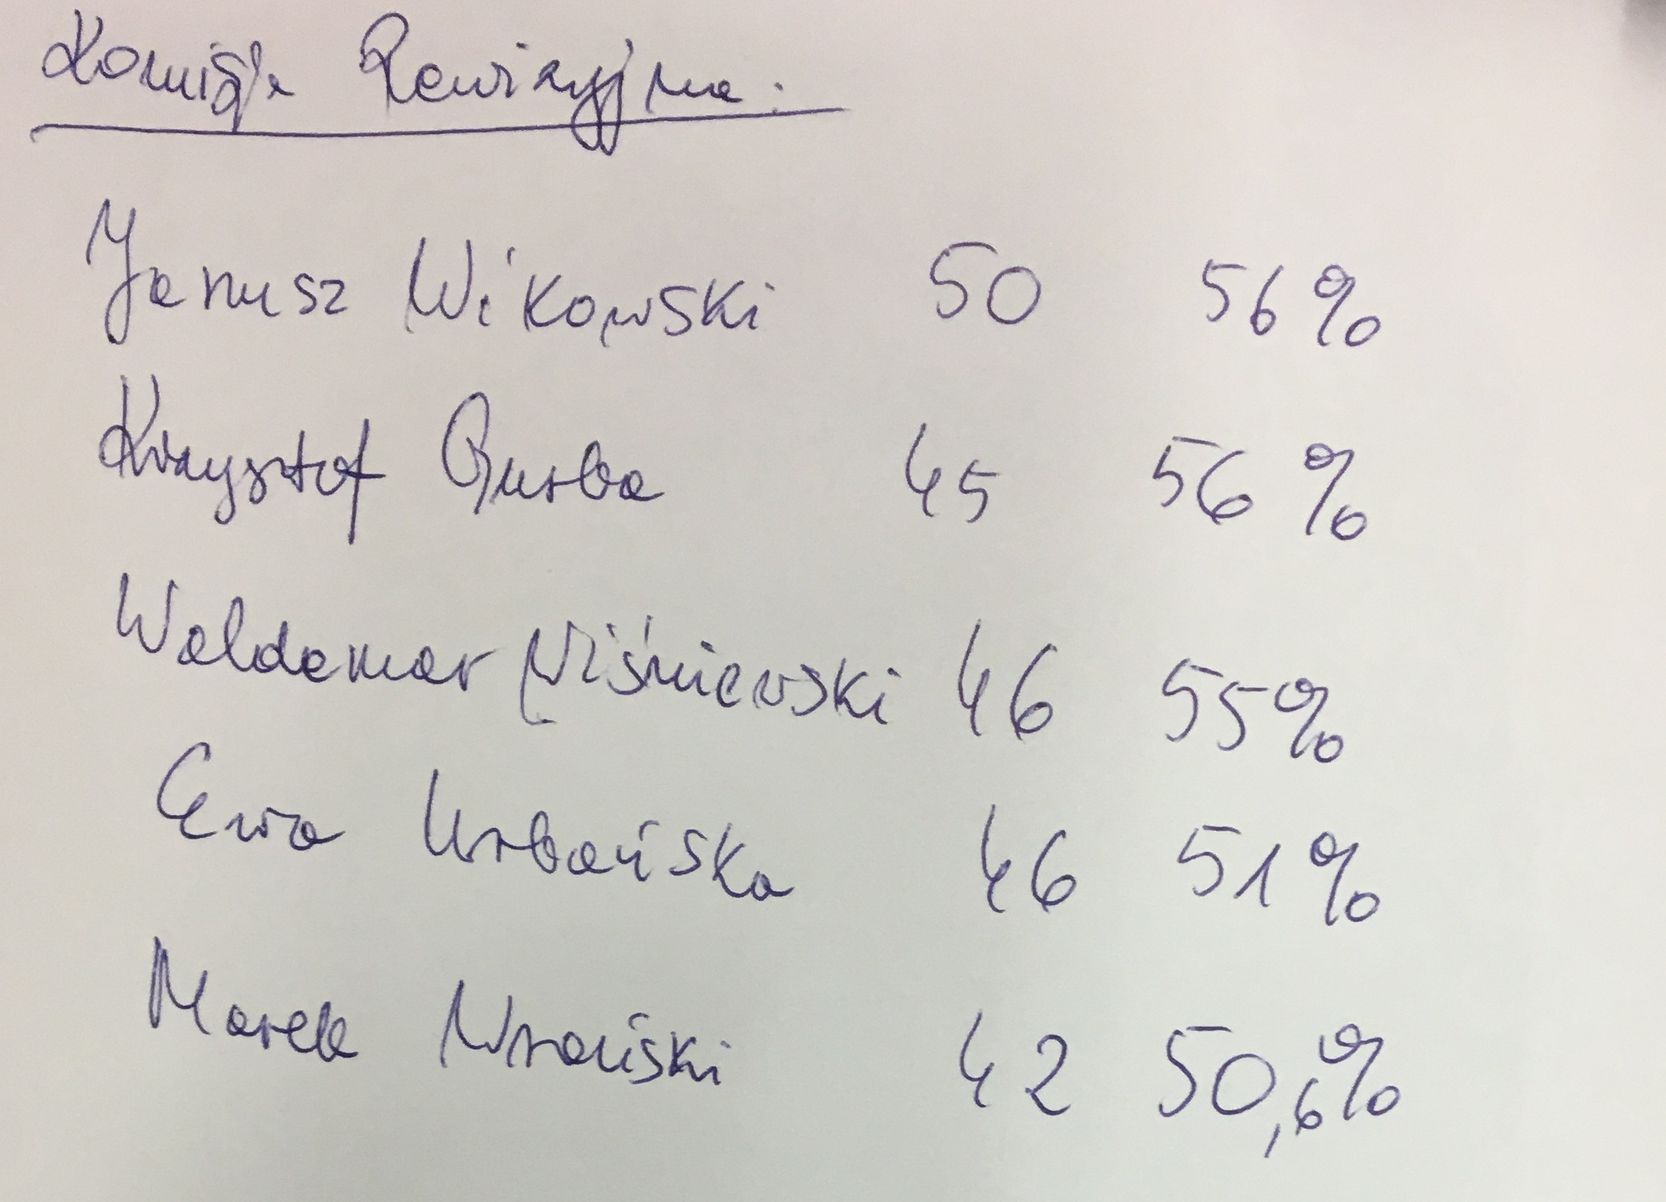 Komisja Rewizyjna:
Janusz Wikowski 50 56%
Krzysztof Gurba 45 56%
Waldemar Wiśniewski 46 55%
Ewa Urbańska 46 51%
Marek Wroński 42 50,6%